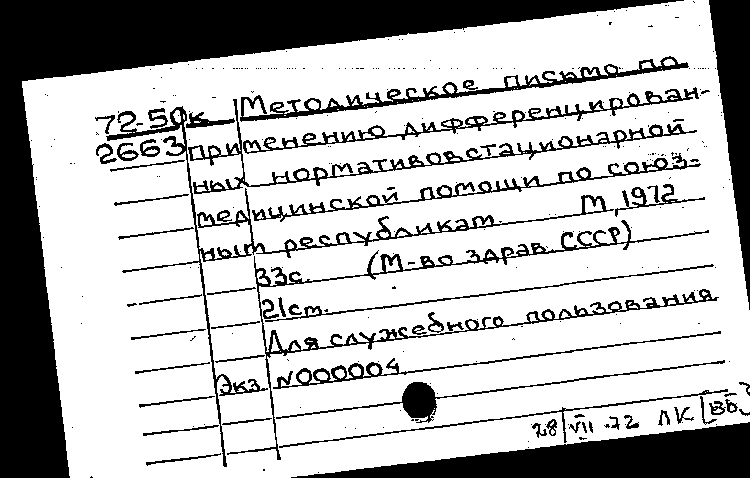 72-50к Методическое письмо по
2663 применению дифференцирован-
ных нормативов стационарной
медицинской помощи по союз-
ным республикам. М, 1972
33с. (М-во здрав. СССР)
21см.
Для служебного пользования
Экз. №000004
28/VII-72 ЛК